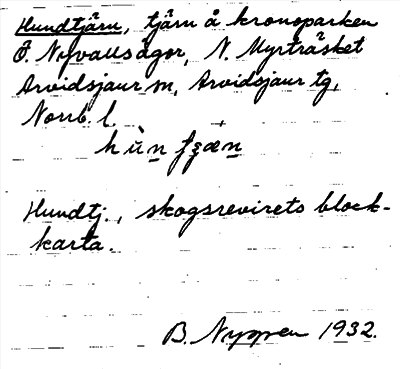 Hundtjärn, tjärn å kronoparken
Ö. Nyvallsågor, N. Myrträsket
Arvidsjaur sn, Arvidsjaur tg,
Norrb. l.
Hundtj., skogsrevirets block-
karta.
B. Nyppen 1932.